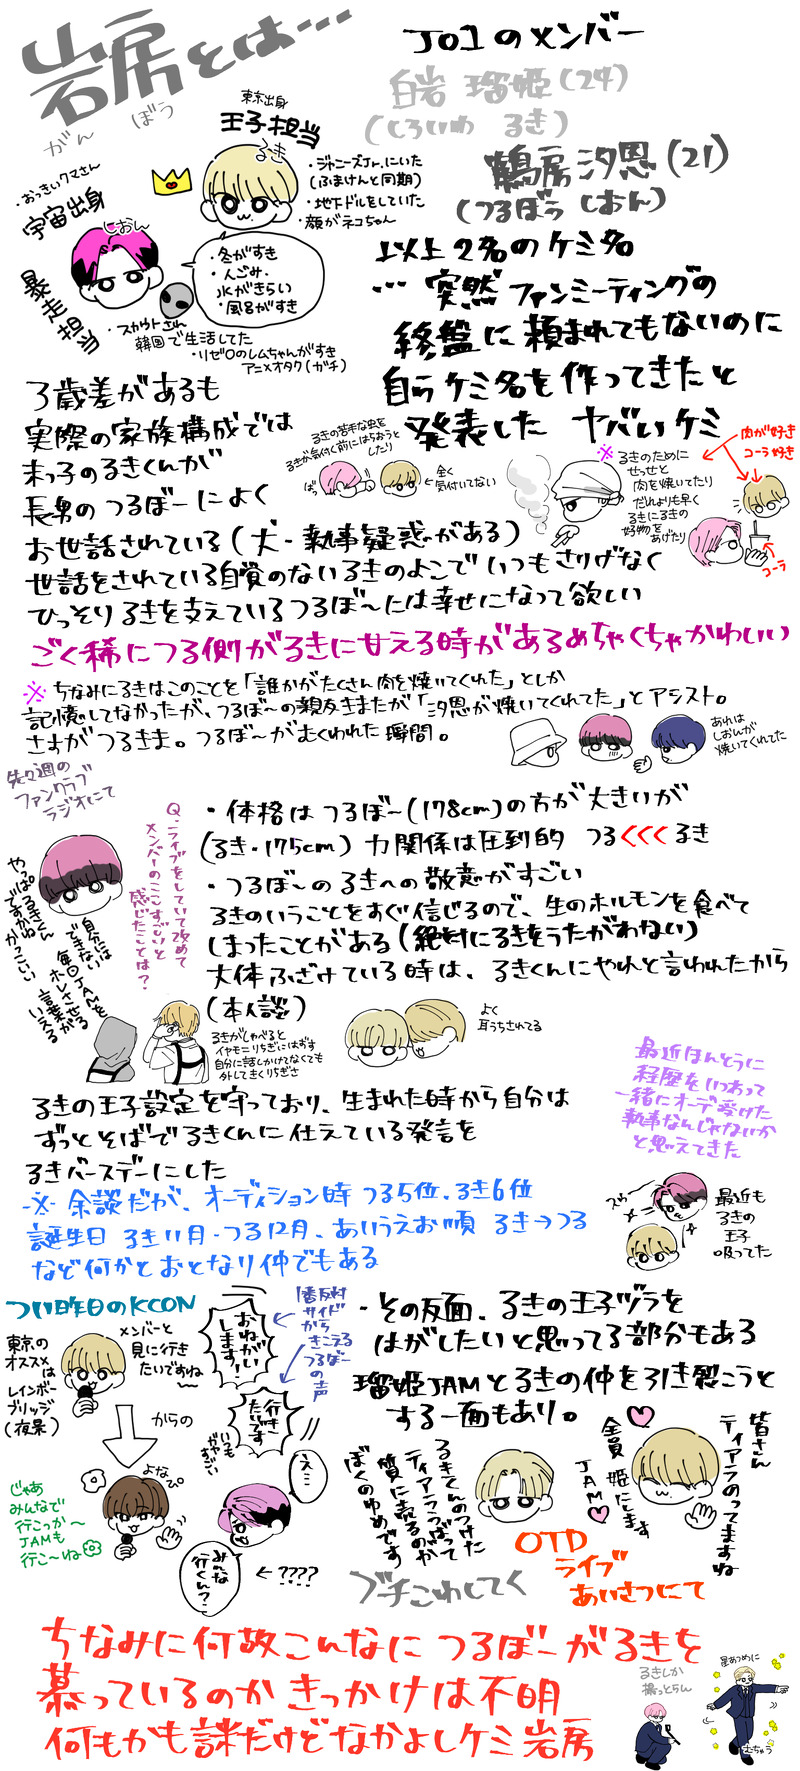 岩房とは…
がん ぼう
JO1のメンバー
白岩 瑠姫(24)
(しろいわ るき)
鶴房汐恩(21)
(つるぼう しおん)
以上2名のケミ名
…突然ファンミーティングの
終盤に頼まれてもないのに
自らケミ名を作ってきたと
発表した ヤバいケミ
東京出身
王子担当
るき
・ジャニーズJr.にいた
(ふまけんと同期)
・地下ドルをしていた
・顔がネコちゃん
・おっきいクマさん
宇宙出身
しおん
暴走担当
・冬がすき
・人ごみ、
水がきらい
・風呂がすき
・スカウトさん
韓国で生活してた
・リゼロのレムちゃんがすき
アニメオタク(ガチ)
3歳差があるも
実際の家族構成では
末っ子のるきくんが
長男のつるぼーによく
お世話されている(犬・執事疑惑がある)
世話をされている自覚のないるきのよこでいつもさりげなく
ひっそりるきを支えているつるぼーには幸せになって欲しい
るきの苦手な虫を
るきが気付く前にはらおうと
したり
ばっ
←全く
気付いてない
※
るきのために
せっせと
肉を焼いてたり
だれよりも早く
るきにるきの
好物を
あげたり
肉が好き
コーラ好き
コーラ
ごく稀につる側がるきに甘える時があるめちゃくちゃかわいい
※ ちなみにるきはこのことを「誰かがたくさん肉を焼いてくれた」としか
記憶してなかったが、つるぼーの親友きまたが「汐恩が焼いてくれてた」とアシスト。
さすがつるきま。つるぼーがむくわれた瞬間。
あれは
しおんが
焼いてくれてた
先々週の
ファンクラブ
ラジオにて
Q.ライブをしていて改めて
メンバーのここすごいと
感じたことは?
やっぱ。るきくん
ですかね
かっこいい
自分には
できない
毎回JAMを
ホレさせる
言葉が
いえる
・体格はつるぼー(178cm)の方が大きいが
(るき・175cm)力関係は圧到的 つる<<<るき
・つるぼーのるきへの敬意がすごい
るきのいうことをすぐ信じるので、生のホルモンを食べて
しまったことがある(絶対にるきをうたがわない)
大体ふざけている時は、るきくんにやれと言われたから
(本人談)
るきがしゃべると
イヤモニりちぎにはずす
自分に話しかけてなくても
外してきくりちぎさ
よく
耳うちされてる
最近ほんとうに
経歴をいつわって
一緒にオーデ受けた
執事なんじゃないか
と思えてきた
るきの王子設定を守っており、生まれた時から自分は
ずっとそばでるきくんに仕えている発言を
るきバースデーにした
※ 余談だが、オーディション時 つる5位、るき6位
誕生日 るき11月・つる12月、あいうえお順 るき→つる
など何かとおとなり仲でもある
スゥ…
最近も
るきの
王子
吸ってた
つい昨日のKCON
東京の
オススメ
は
レインボー
ブリッジ
(夜景)
メンバーと
見に行き
たいですね
からの
おねがい
します!
1番反対
サイド
から
きこえる
つるぼー
の声
行きたい
です
いつも
ガヤが
すごい
よなぴ。
じゃあ
みんなで
行こっか〜
JAMも
行こ〜ね
え…
みんな
行くん?
←????
・その反面、るきの王子ヅラを
はがしたいと思ってる部分もある
瑠姫JAMとるきの仲を引き裂こうと
する一面もあり。
皆さん
ティアラのってますね
全員 姫にします
JAM
るきくんのつけた
ティアラうばって
質に売るのが
ぼくのゆめです
ブチこわしてく
OTD
ライブ
あいさつにて
ちなみに何故こんなにつるぼーがるきを
慕っているのかきっかけは不明
何もかも謎だけどなかよしケミ岩房
るきしか
撮っとらん
星あつめに
むちゅう